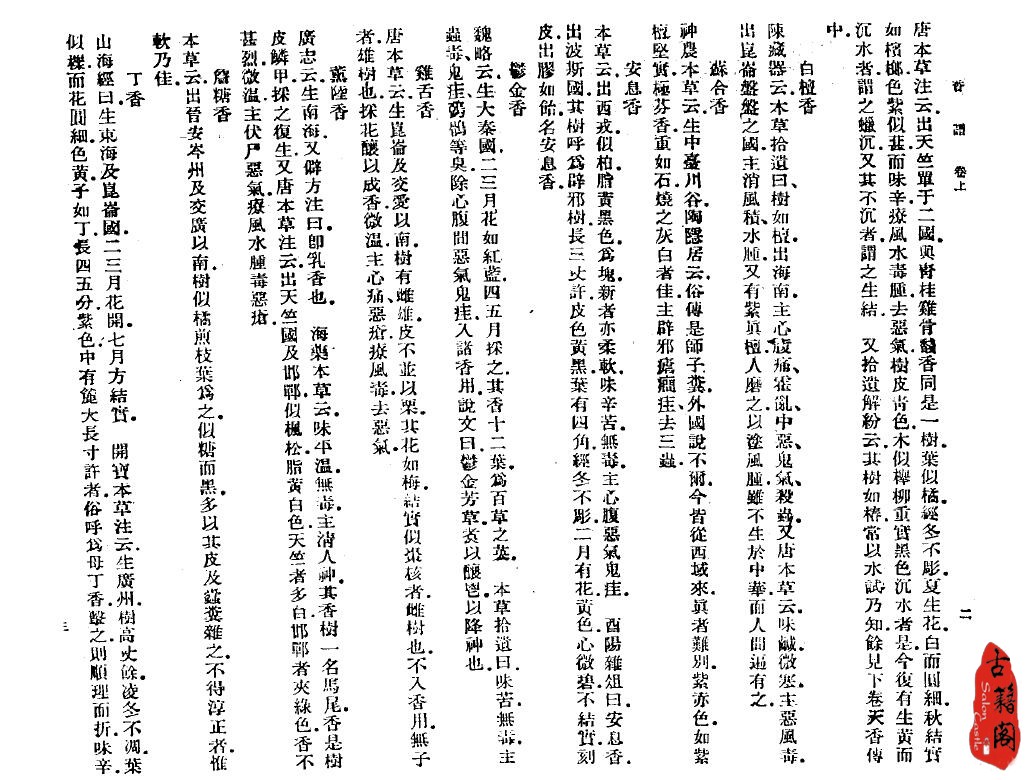 香譜 卷上 二
唐本草注云出天竺單于二國與青桂雞骨馢香同是一樹葉似橘經冬不彫夏生花白而圓細秋結實
如檳榔色紫似葚而味辛療風水毒腫去惡氣樹皮青色木似櫸柳重實黑色沉水者是今復有生黃而
沉水者謂之蠟沉又其不沉者謂之生結 又拾遺解紛云其樹如椿常以水試乃知餘見下卷天香傳
中
白檀香
陳藏器云本草拾遺曰樹如檀出海南主心腹痛霍亂中惡鬼氣殺蟲又唐本草云味鹹微寒主惡風毒
出崑崙盤盤之國主消風積水腫又有紫眞檀人磨之以塗風腫雖不生於中華而人間遍有之
蘇合香
神農本草云生中臺川谷陶隱居云俗傳是師子糞外國說不爾今皆從西域來眞者難別紫赤色如紫
檀堅實極芬香重如石燒之灰白者佳主辟邪瘧癎疰去三蟲
安息香
本草云出西戎似柏脂黃黑色爲塊新者亦柔軟味辛苦無毒主心腹惡氣鬼疰 酉陽雜俎曰安息香
出波斯國其樹呼爲辟邪樹長三丈許皮色黃黑葉有四角經冬不彫二月有花黃色心微碧不結實刻
皮出膠如飴名安息香
鬱金香
魏略云生大秦國二三月花如紅藍四五月採之其香十二葉爲百草之英 本草拾遺曰味苦無毒主
蟲毒鬼疰鴉鶻等臭除心腹間惡氣鬼疰入諸香用說文曰鬱金芳草煑以釀鬯以降神也
雞舌香
唐本草云生崑崙及交愛以南樹有雌雄皮不並以栗其花如梅結實似棗核者雌樹也不入香用無子
者雄樹也採花釀以成香微溫主心痛惡瘡療風毒去惡氣
薰陸香
廣志云生南海又僻方注曰卽乳香也 海藥本草云味平溫無毒主清人神其香樹一名馬尾香是樹
皮鱗甲採之復生又唐本草注云出天竺國及邯鄲似楓松脂黃白色天竺者多白邯鄲者夾綠色香不
甚烈微溫主伏尸惡氣療風水腫毒惡瘡
詹糖香
本草云出晉安岑州及交廣以南樹似橘煎枝葉爲之似糖而黑多以其皮及蠹糞雜之不得淳正者惟
軟乃佳
丁香
山海經曰生東海及崑崙國二三月花開七月方結實 開寶本草注云生廣州樹高丈餘凌冬不凋葉
似櫟而花圓細色黃子如丁長四五分紫色中有麤大長寸許者俗呼爲母丁香擊之則順理而折味辛
三
古籍閣
Salon
Castle